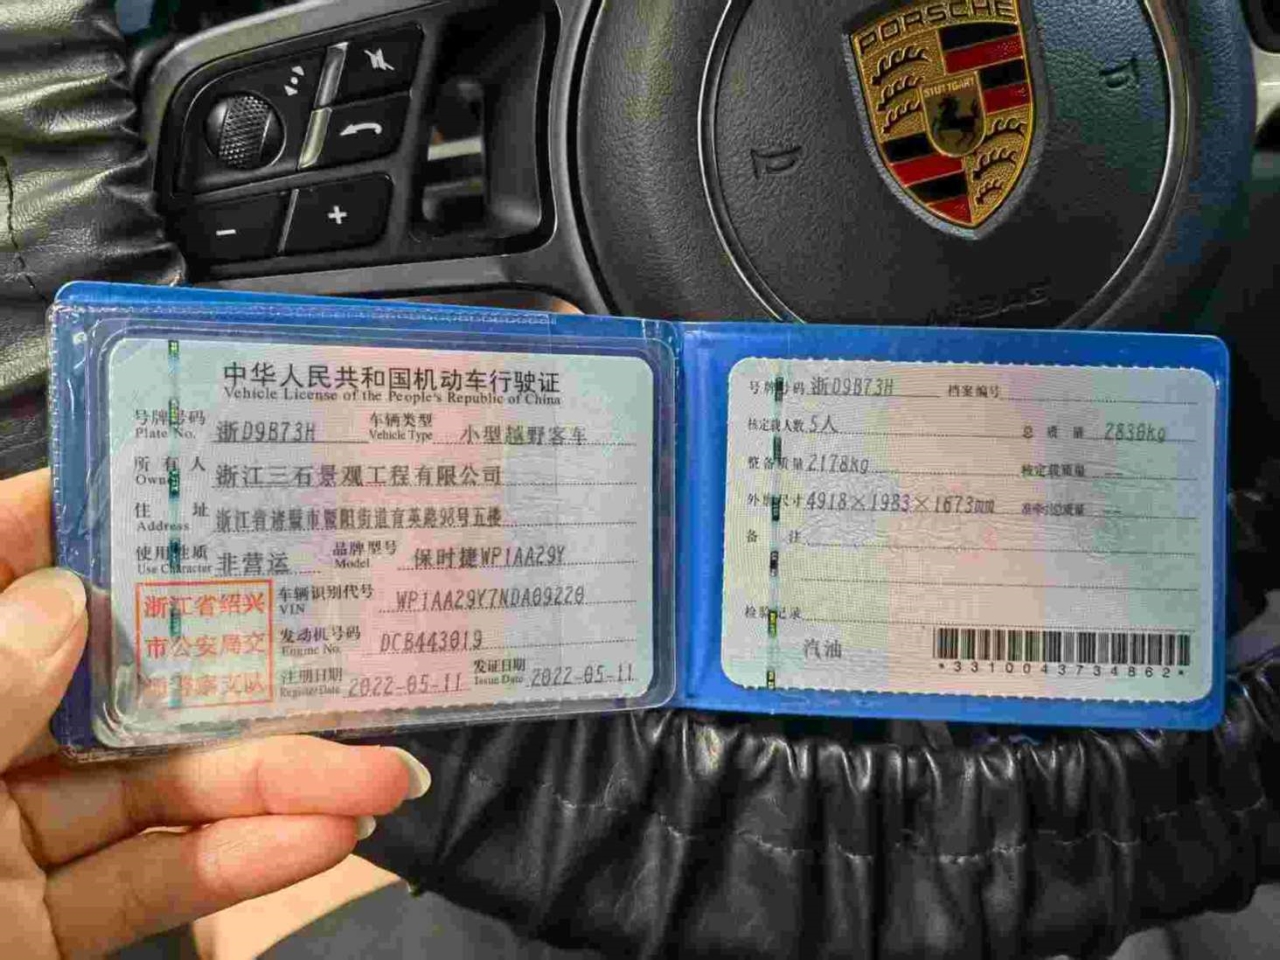 PORSCHE
STUTTGART
中华人民共和国机动车行驶证
Vehicle License of the People's Republic of China
号牌号码 浙D9B73H 车辆类型 小型越野客车
Plate No. Vehicle Type
所有人 浙江三石景观工程有限公司
Owner
住址 浙江省诸暨市暨阳街道育英路98号五楼
Address
使用性质 非营运 品牌型号 保时捷WP1AA29Y
Use Character Model
浙江省绍兴
市公安局交
车辆识别代号 WP1AA29Y7NDA09220
VIN
发动机号码 DCB443019
Engine No.
注册日期 2022-05-11 发证日期 2022-05-11
Register Date Issue Date
号牌号码 浙D9B73H 档案编号
核定载人数 5人 总质量 2830kg
整备质量 2178kg 核定载质量 --
外廓尺寸 4918×1983×1673mm 准牵引总质量 --
备注
检验记录
汽油
*3310043734862*